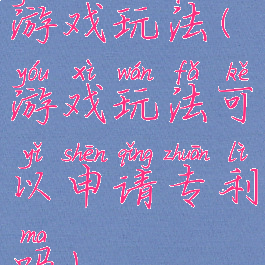 游戏玩法(
yóu xì wán fǎ kě
游戏玩法可
yǐ shēn qǐng zhuān lì
以申请专利
ma
吗)